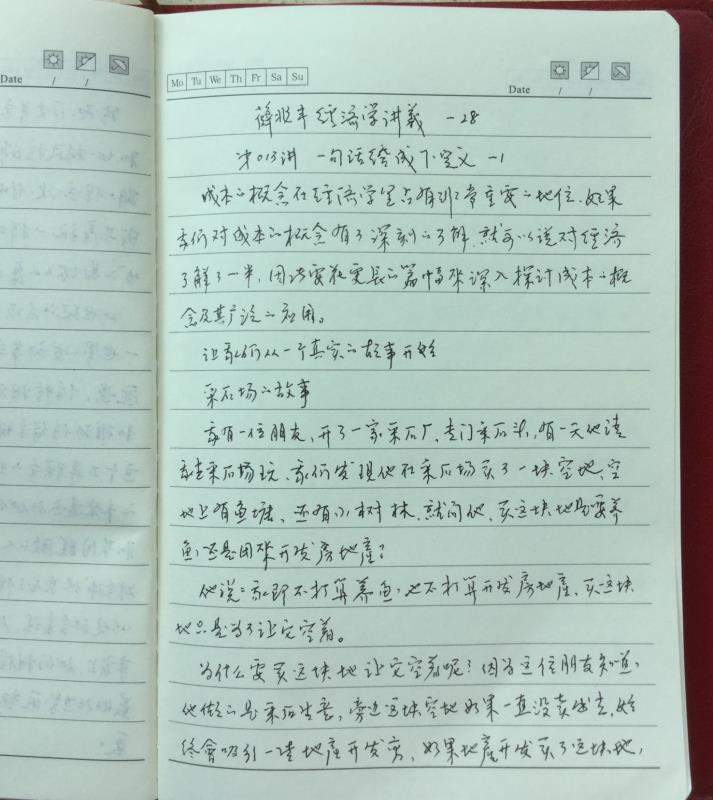 Date / /
Mo Tu We Th Fr Sa Su
Date / /
薛兆丰经济学讲義 -28
第013讲 一句话给成下定义 -1
成本的概念在经济学里占有非常重要的地位,如果
我们对成本的概念有了深刻的了解,就可以说对经济
了解了一半,因此要花更長的篇幅来深入探讨成本的概
念及其广泛的应用。
让我们从一个真实的故事开始
采石场的故事
我有一位朋友,开了一家采石厂,专门采石头,有一天他请
我去采石场玩,我们发现他在采石场买了一块空地,空
地上有鱼塘,还有小树林,就问他,买这块地是要养
鱼,还是用来开发房地產?
他说:我即不打算养鱼,也不打算开发房地產,买这块
地只是为了让它空着。
为什么要买这块地让它空着呢?因为这位朋友知道,
他做的是采石生意,旁边这块空地如果一直没卖出去,始
终會吸引一些地產开发商,如果地產开发买了这块地,